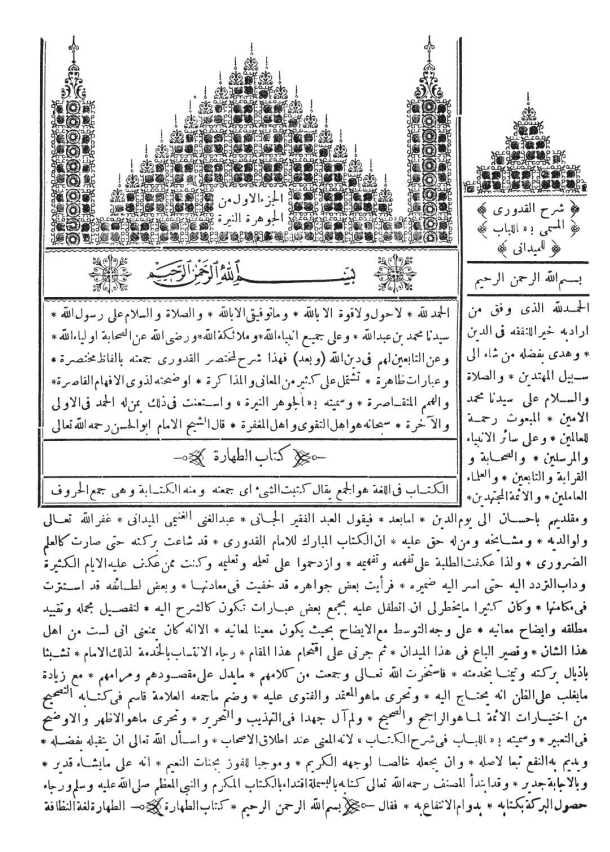 الجزء الاول من
الجوهرة النيرة
بسم الله الرحمن الرحيم
الحمد لله * لاحول ولا قوة الا بالله * وما توفيقى الا بالله * والصلاة والسلام على رسول الله *
سيدنا محمد بن عبدالله * وعلى جميع انبياء الله * وملائكة الله * ورضى الله عن الصحابة اولياء الله *
وعن التابعين لهم فى دين الله (وبعد) فهذا شرح لمختصر القدورى جمعته بالفاظ مختصرة *
وعبارات ظاهرة * تشتمل على كثير من المعانى والمذاكرة * اوضحته لذوى الافهام القاصرة *
والهمم المتقاصرة * وسميته بـ«الجوهر النيرة» واستعنت فى ذلك بمن له الحمد فى الاولى
والآخرة * سبحانه هو اهل التقوى واهل المغفرة * قال الشيخ الامام ابو الحسن رحمه الله تعالى
كتاب الطهارة
الكتاب فى اللغة هو الجمع يقال كتبت الشئ اى جمعته ومنه الكتابة وهى جمع الحروف
شرح القدورى
المسمى بـ«اللباب»
للميدانى
بسم الله الرحمن الرحيم
الحمد لله الذى وفق من
اراد به خير للتفقه فى الدين
* وهدى بفضله من شاء الى
سبيل المهتدين * والصلاة
والسلام على سيدنا محمد
الامين * المبعوث رحمة
للعالمين * وعلى سائر الانبياء
والمرسلين * والصحابة و
القرابة والتابعين * والعلماء
العاملين * والائمة المجتهدين *
ومقلديهم باحسان الى يوم الدين * امابعد * فيقول العبد الفقير الجانى * عبدالغنى الغنيمى الميدانى * غفر الله تعالى
ولوالديه * ومشايخه ومن له حق عليه * ان الكتاب المبارك للامام القدورى * قد شاعت بركته حتى صارت كالعلم
الضرورى * ولذا عكفت الطلبة على تفهمه وتفهيمه * وازدحموا على تعلمه وتعليمه وكنت ممن عكف عليه الايام الكثيرة
وداب التردد اليه حتى اسر اليه ضميره * فرأيت بعض جواهره قد خفيت فى معادنها * وبعض لطائفه قد استترت
فى مكامنها * وكان كثيرا ما يخطر لى ان اتطفل عليه بجمع بعض عبارات تكون كالشرح اليه * لتفصيل مجمله وتقييد
مطلقه وايضاح معانيه * على وجه التوسط مع الايضاح بحيث يكون معينا لمعانيه * الا انه كان يمنعنى انى لست من اهل
هذا الشان * وقصير الباع فى هذا الميدان * ثم جرنى على اقتحام هذا المقام * رجاء الانتساب بالخدمة لذلك الامام * تشبثا
باذيال بركته وتيمنا بخدمته * فاستخرت الله تعالى وجمعت من كلامهم * ما يدل على مقصودهم ومرامهم * مع زيادة
ما يغلب على الظن انه يحتاج اليه * وتحرى ما هو المعتمد والفتوى عليه * وضم ما جمعه العلامة قاسم فى كتابه التصحيح
من اختيارات الائمة لما هو الراجح والصحيح * ولم آل جهدا فى التهذيب والتحرير * وتحرى ما هو الاظهر والاوضح
فى التعبير * وسميته بـ«اللباب فى شرح الكتاب» لانه المعنى عند اطلاق الاصحاب * واسأل الله تعالى ان يتقبله بفضله *
ويديم به النفع تبعا لاصله * وان يجعله خالصا لوجهه الكريم * وموجبا للفوز بجنات النعيم * انه على ما يشاء قدير *
وبالاجابة جدير * وقد ابتدأ المصنف رحمه الله تعالى كتابه بالبسملة اقتداء بالكتاب المكرم والنبى المعظم صلى الله عليه وسلم ورجاء
حصول البركة بكتابه * بدوام الانتفاع به * فقال بسم الله الرحمن الرحيم * كتاب الطهارة الطهارة لغة النظافة